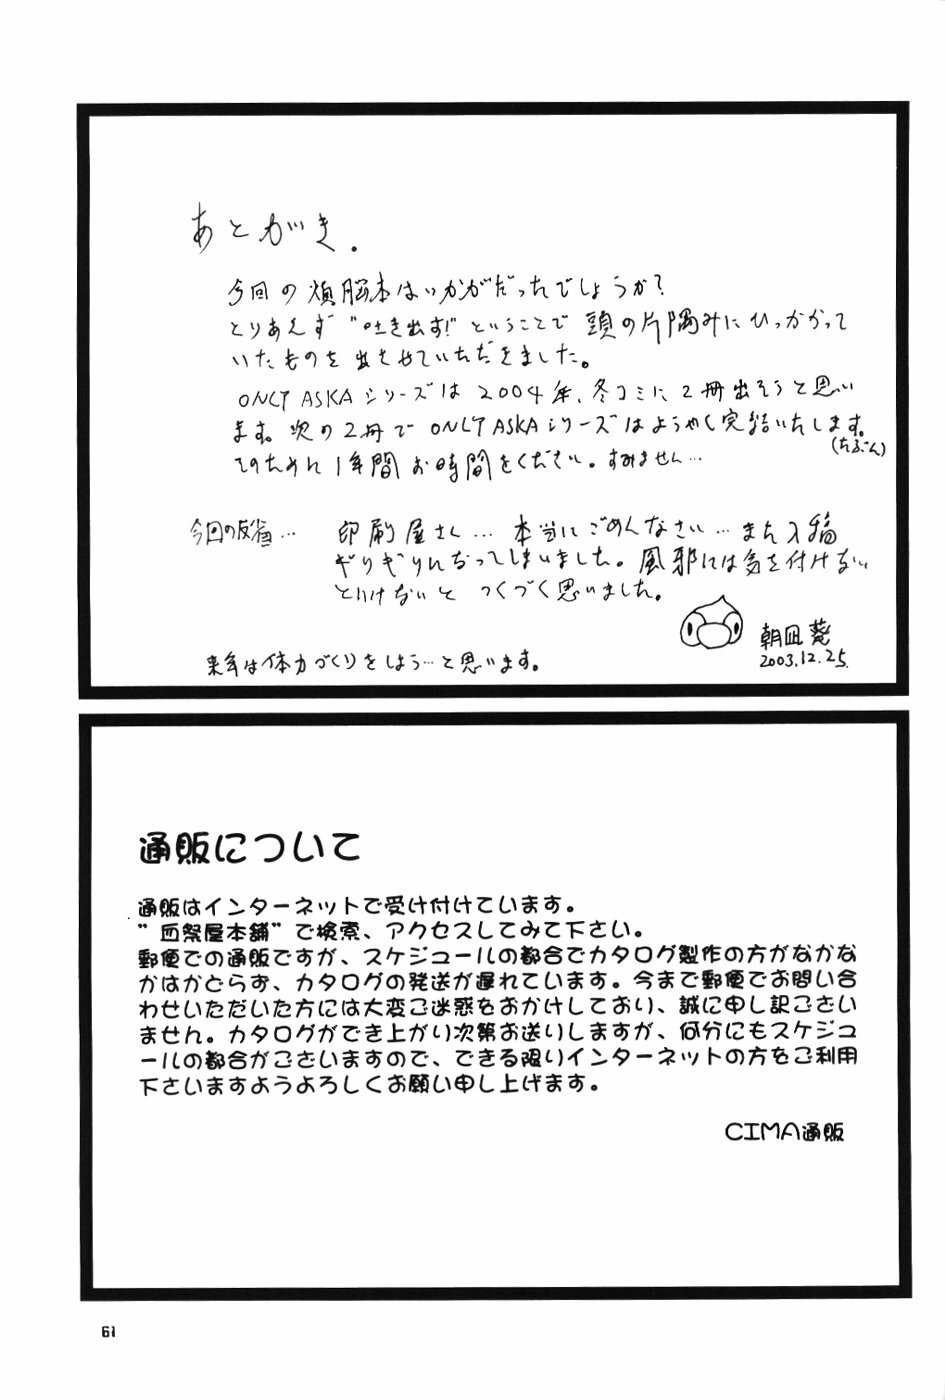 あとがき.
今回の煩脳本はいかがだったでしょうか?
とりあえず"吐き出す!"ということで頭の片隅みにひっかかって
いたものを出させていただきました。
ONLY ASKAシリーズは2004年、冬コミに2冊出そうと思い
ます。次の2冊でONLY ASKAシリーズはようやく完結いたします。
(たぶん)
そのために1年間お時間をください。すみません…
今回の反省… 印刷屋さん…本当にごめんなさい…また入稿
ギリギリになってしまいました。風邪には気を付けない
といけないと つくづく思いました。
朝凪 葵
2003.12.25.
来年は体力づくりをしよう…と思います。
通販について
通販はインターネットで受け付けています。
"血祭屋本舗"で検索、アクセスしてみて下さい。
郵便での通販ですが、スケジュールの都合でカタログ製作の方がなかな
かはかどらず、カタログの発送が遅れています。今まで郵便でお問い合
わせいただいた方には大変ご迷惑をおかけしており、誠に申し訳ござい
ません。カタログができ上がり次第お送りしますが、何分にもスケジュ
ールの都合がございますので、できる限りインターネットの方をご利用
下さいますようよろしくお願い申し上げます。
CIMA通販
61